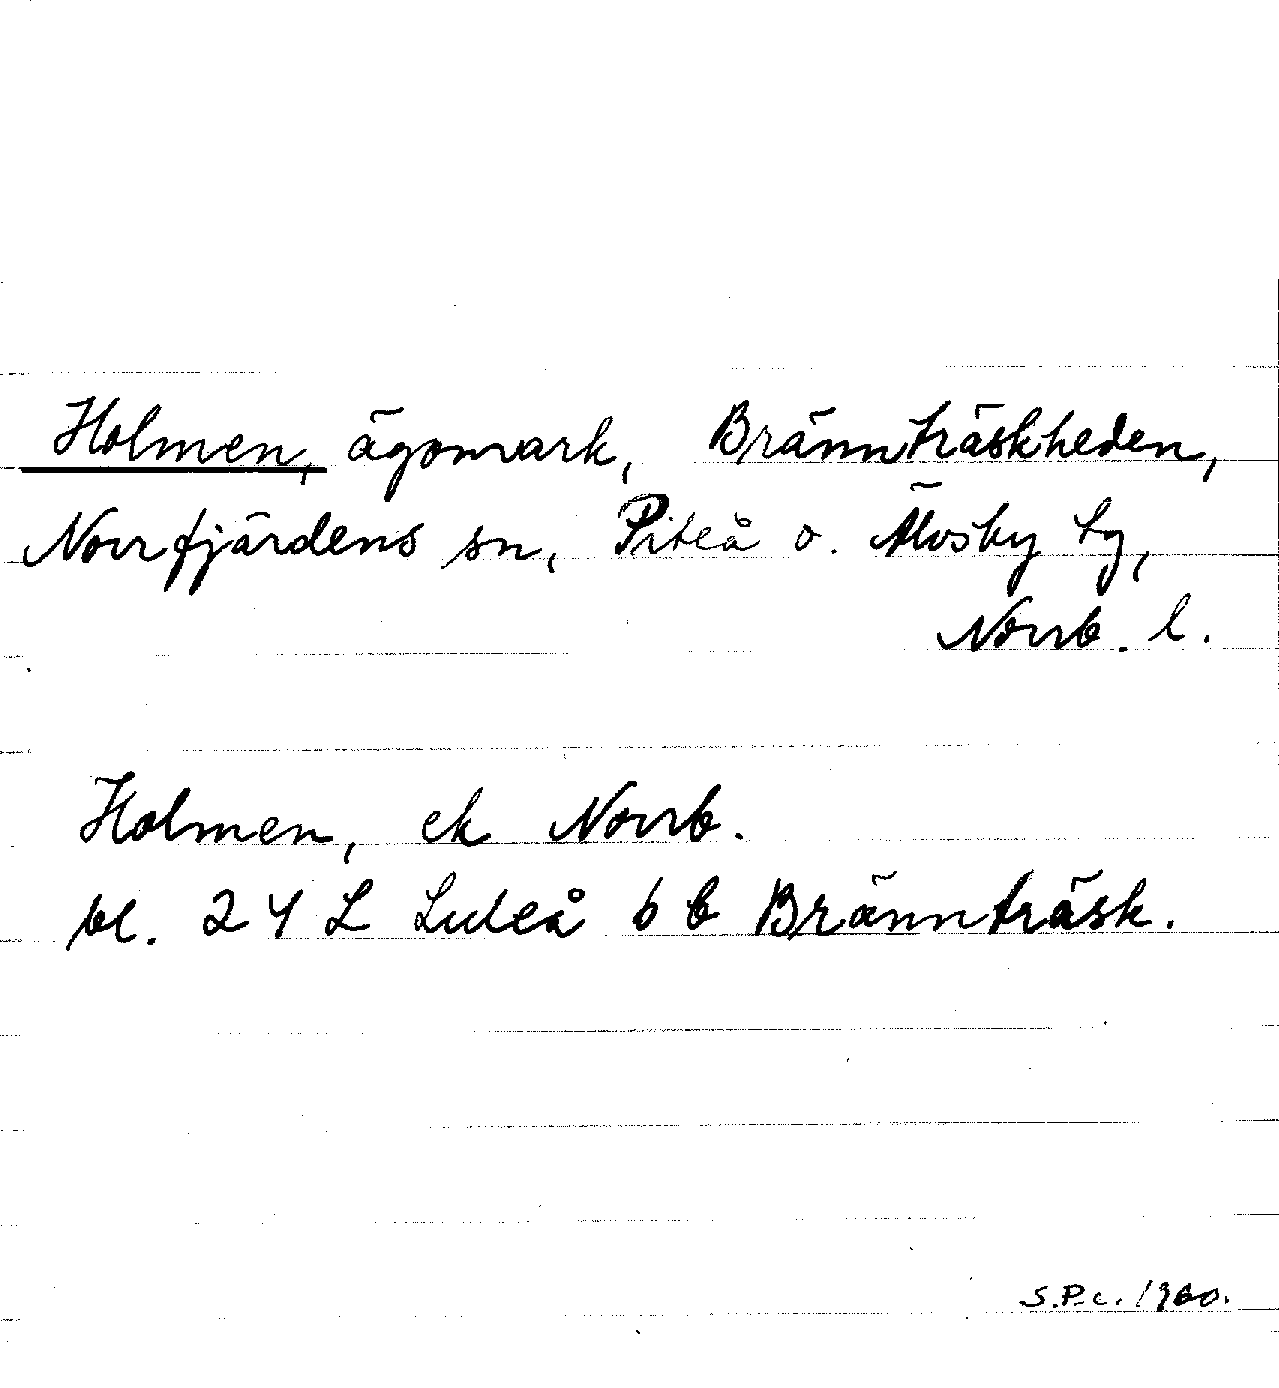 Holmen, ägomark, Brännträskheden,
Norrfjärdens sn, Piteå o. Älvsby tg,
Norrb. l.
Holmen, ek Norrb.
bl. 24 L Luleå 6 b Brännträsk.
S.P.c. 1960.